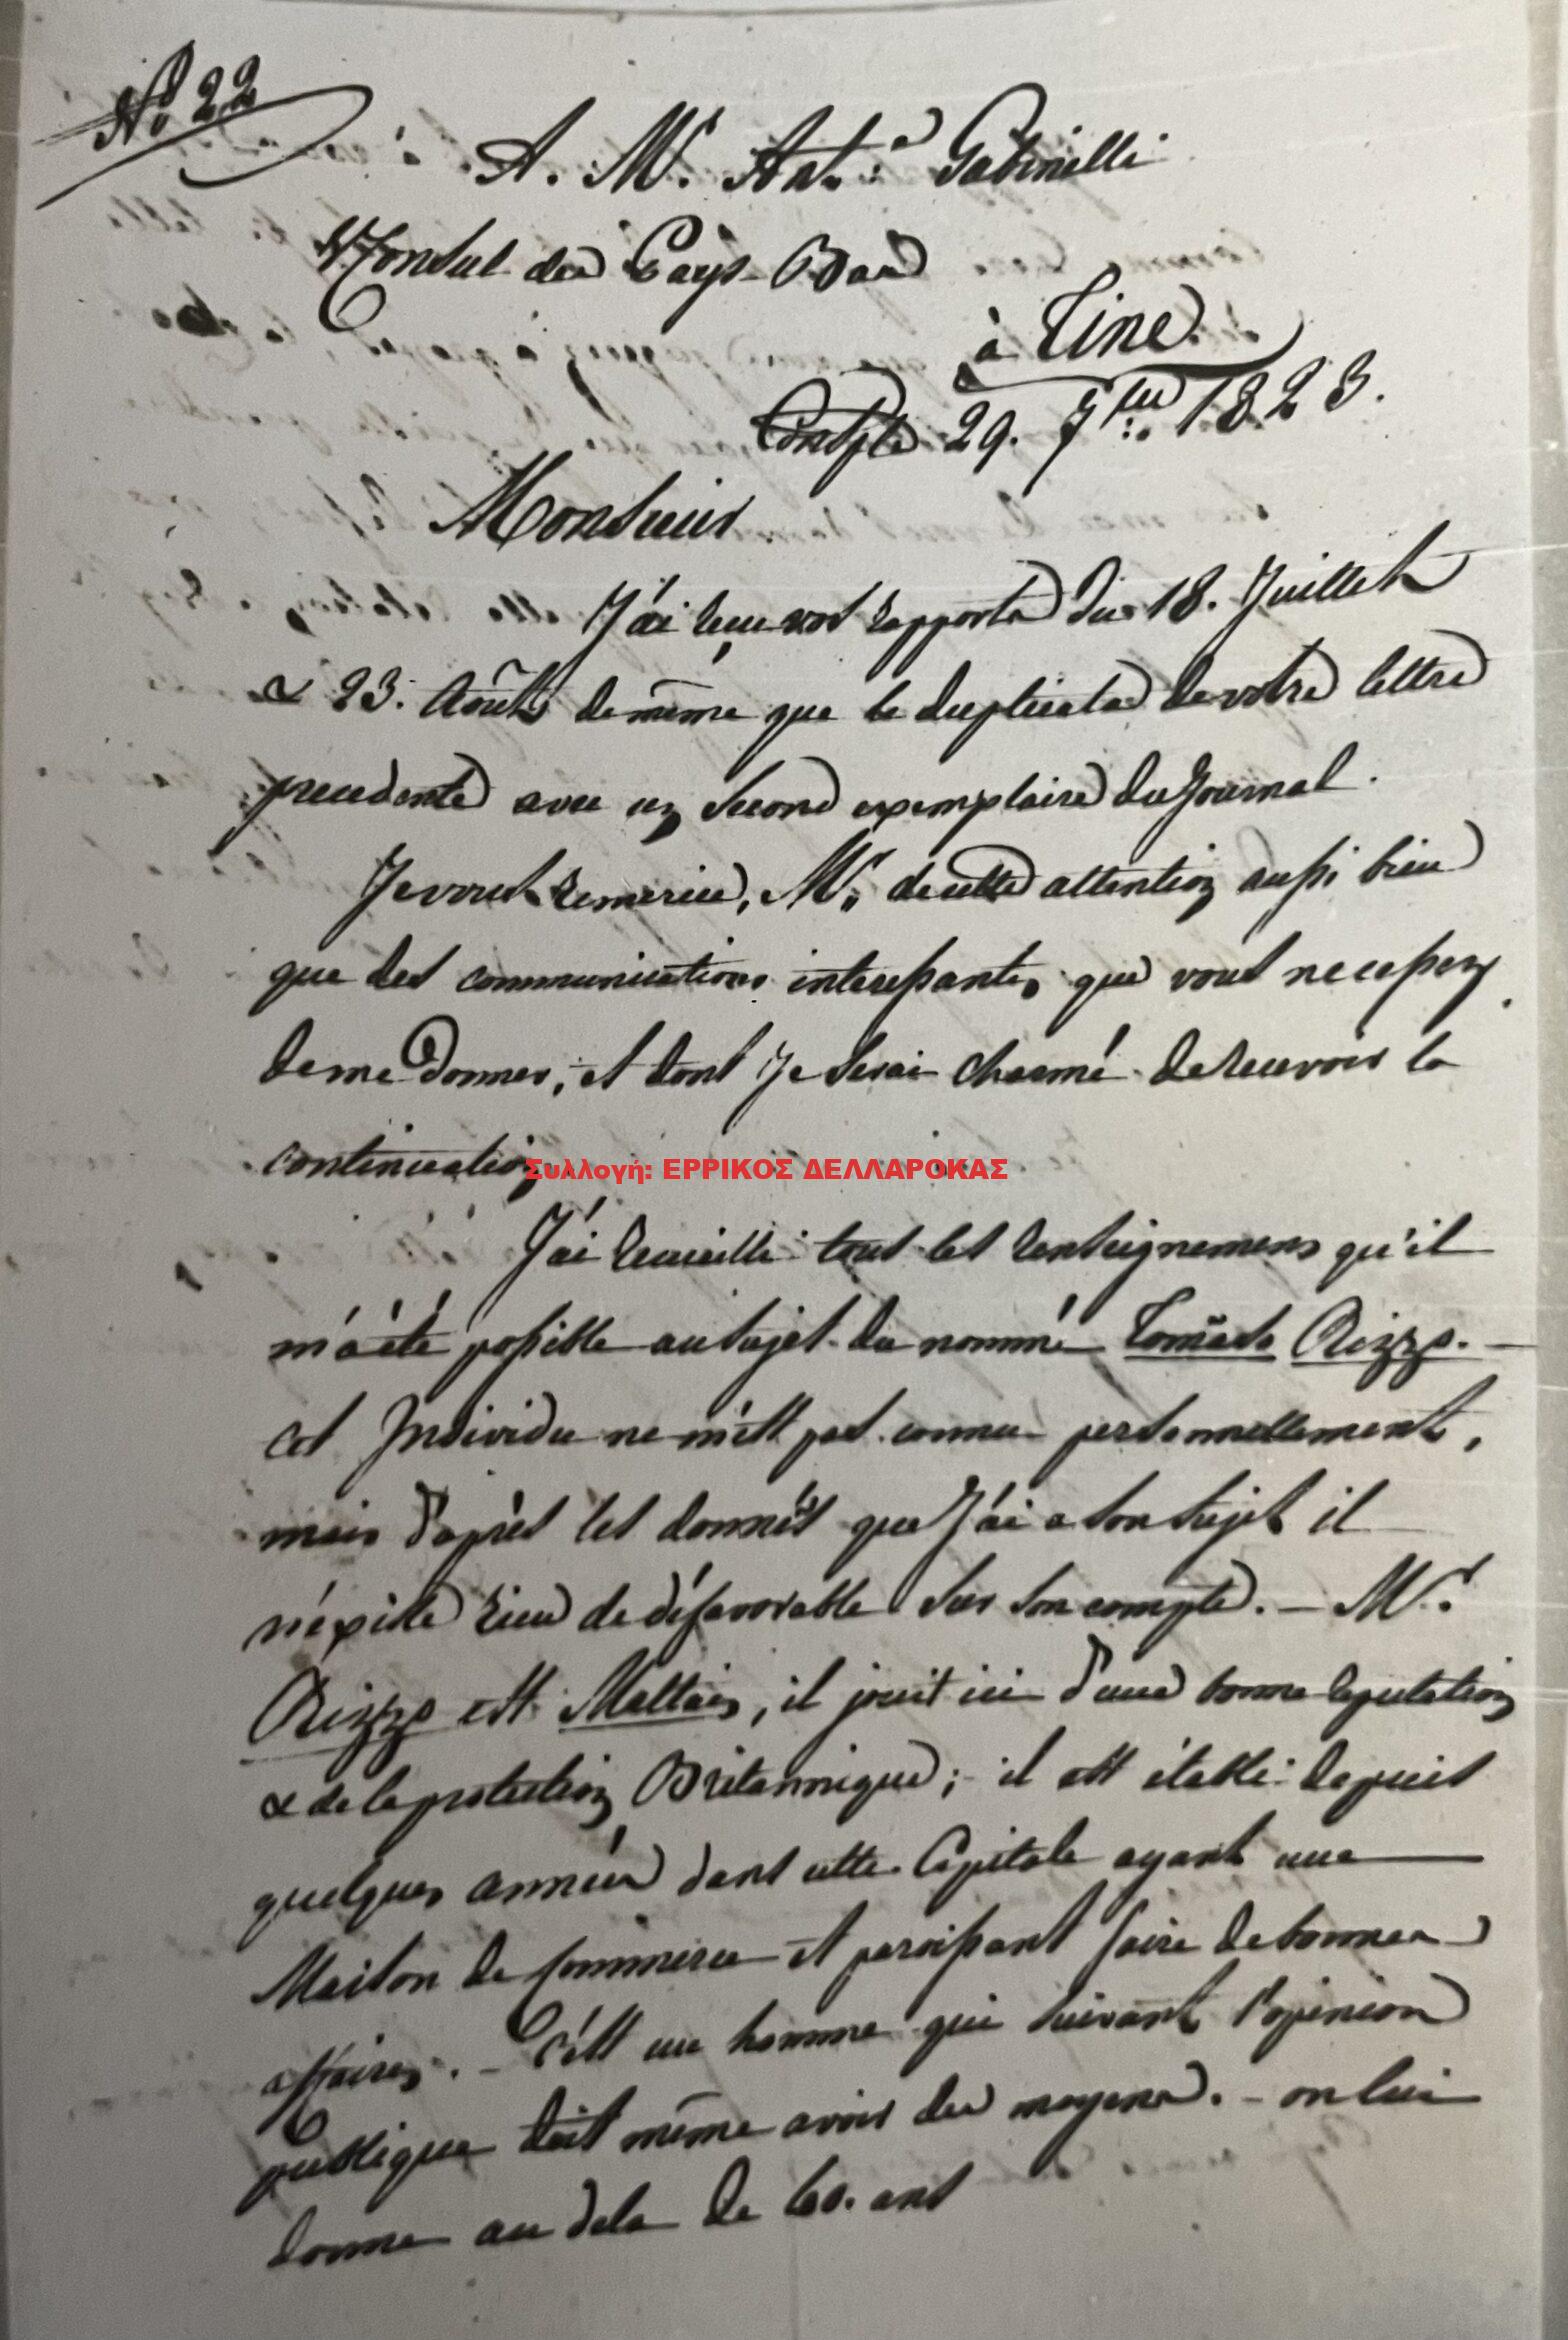 No. 22
A. Mr. Ant.o Gabinelli
V/Consul des Pays-Bas
à Tine.
Constple 29. 7bre 1823.
Monsieur
J'ai reçu vos rapports du 18. Juillet
& 23. Août de même que le duplicata de votre lettre
precedente avec un second exemplaire du Journal.
Je vous remercie, Mr. de cette attention aussi bien
que des communications interessantes que vous ne cessez
de me donner, et dont Je serai charmé de recevoir la
continuation
Συλλογή: ΕΡΡΙΚΟΣ ΔΕΛΛΑΡΟΚΑΣ
J'ai recueilli tous les renseignemens qu'il
m'a été possible au sujet du nommé Tomaso Rizzo. —
Cet Individu ne m'est pas connu personnellement,
mais d'après les donnés que J'ai a son sujet il
n'éxiste rien de défavorable sur son compte. — Mr.
Rizzo est Maltais, il jouit ici d'une bonne reputation
& de la protection Britannique; il est établi depuis
quelques années dans cette Capitale ayant une
Maison de Commerce et paroissant faire de bonnes
affaires. — C'est un homme qui suivant l'opinion
publique doit même avoir des moyens. — on lui
donne au dela de 60. ans